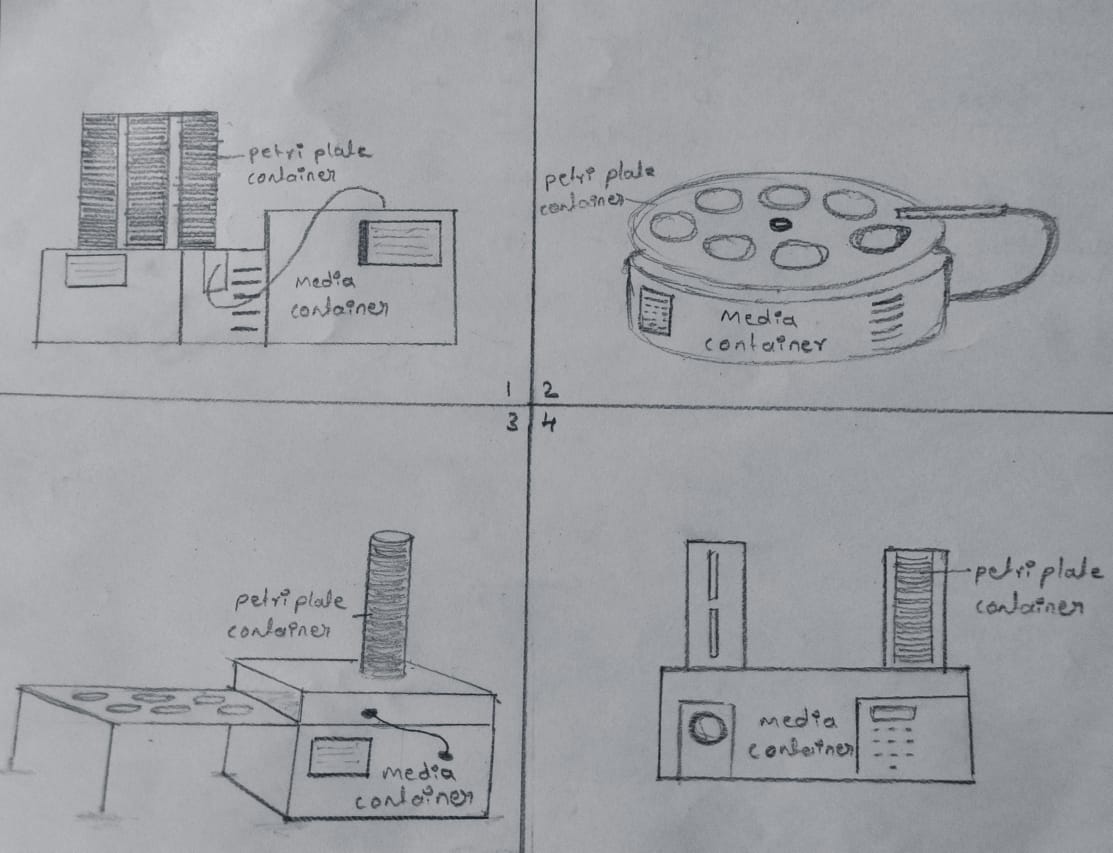 petri plate
container
Media
container
petri plate
container
Media
container
1 2
3 4
petri plate
container
media
container
petri plate
container
media
container